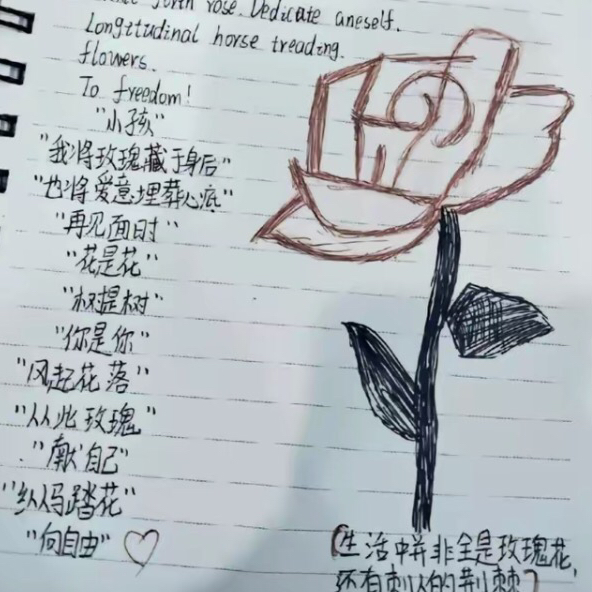 forth rose. Dedicate aneself.
Longitudinal horse treading.
flowers.
To freedom!
"小孩"
"我将玫瑰藏于身后"
"也将爱意埋葬心底"
"再见面时"
"花是花"
"树提树"
"你是你"
"风起花落"
"从此玫瑰"
"献自己"
"纵马踏花"
"向自由"
(生活中并非全是玫瑰花,
还有刺人的荆棘)